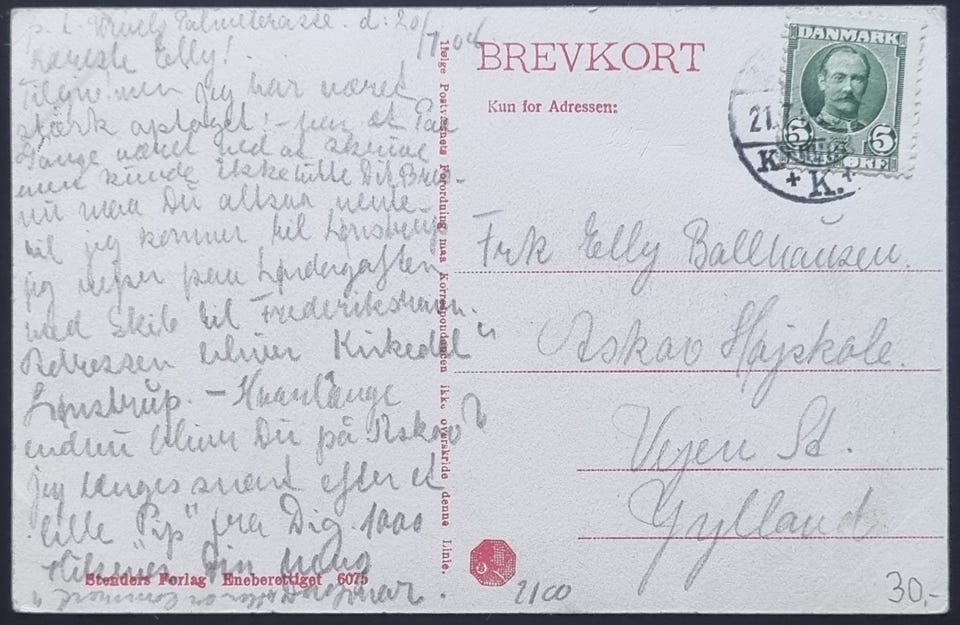 p. t. Palmeterasse. d: 20/7 04
Kæreste Elly!
Tilgiv! men jeg har været
stærk optaget! –
længe været ved at skrive
men kunde ikke
nu maa Du altsaa vente
til jeg kommer til Lønstrup
jeg rejser paa Søndergaften
med Skib til Frederikshavn.
Adressen bliver Kirkedal"
Lønstrup. – Hvorlænge
endnu bliver Du på Askov?
jeg længes snart efter et
lille "Pip" fra Dig. 1000
Hilsner Din
Dagmar.
Ifølge Postvæsnets Forordning maa Korrespondancen ikke overskride denne Linie.
Stenders Forlag Eneberettiget 6075
BREVKORT
Kun for Adressen:
DANMARK
5 5
ØRE
21.7
K.
Frk Elly Ballhausen.
Askov Højskole.
Vejen St.
Jylland
2100
30,-